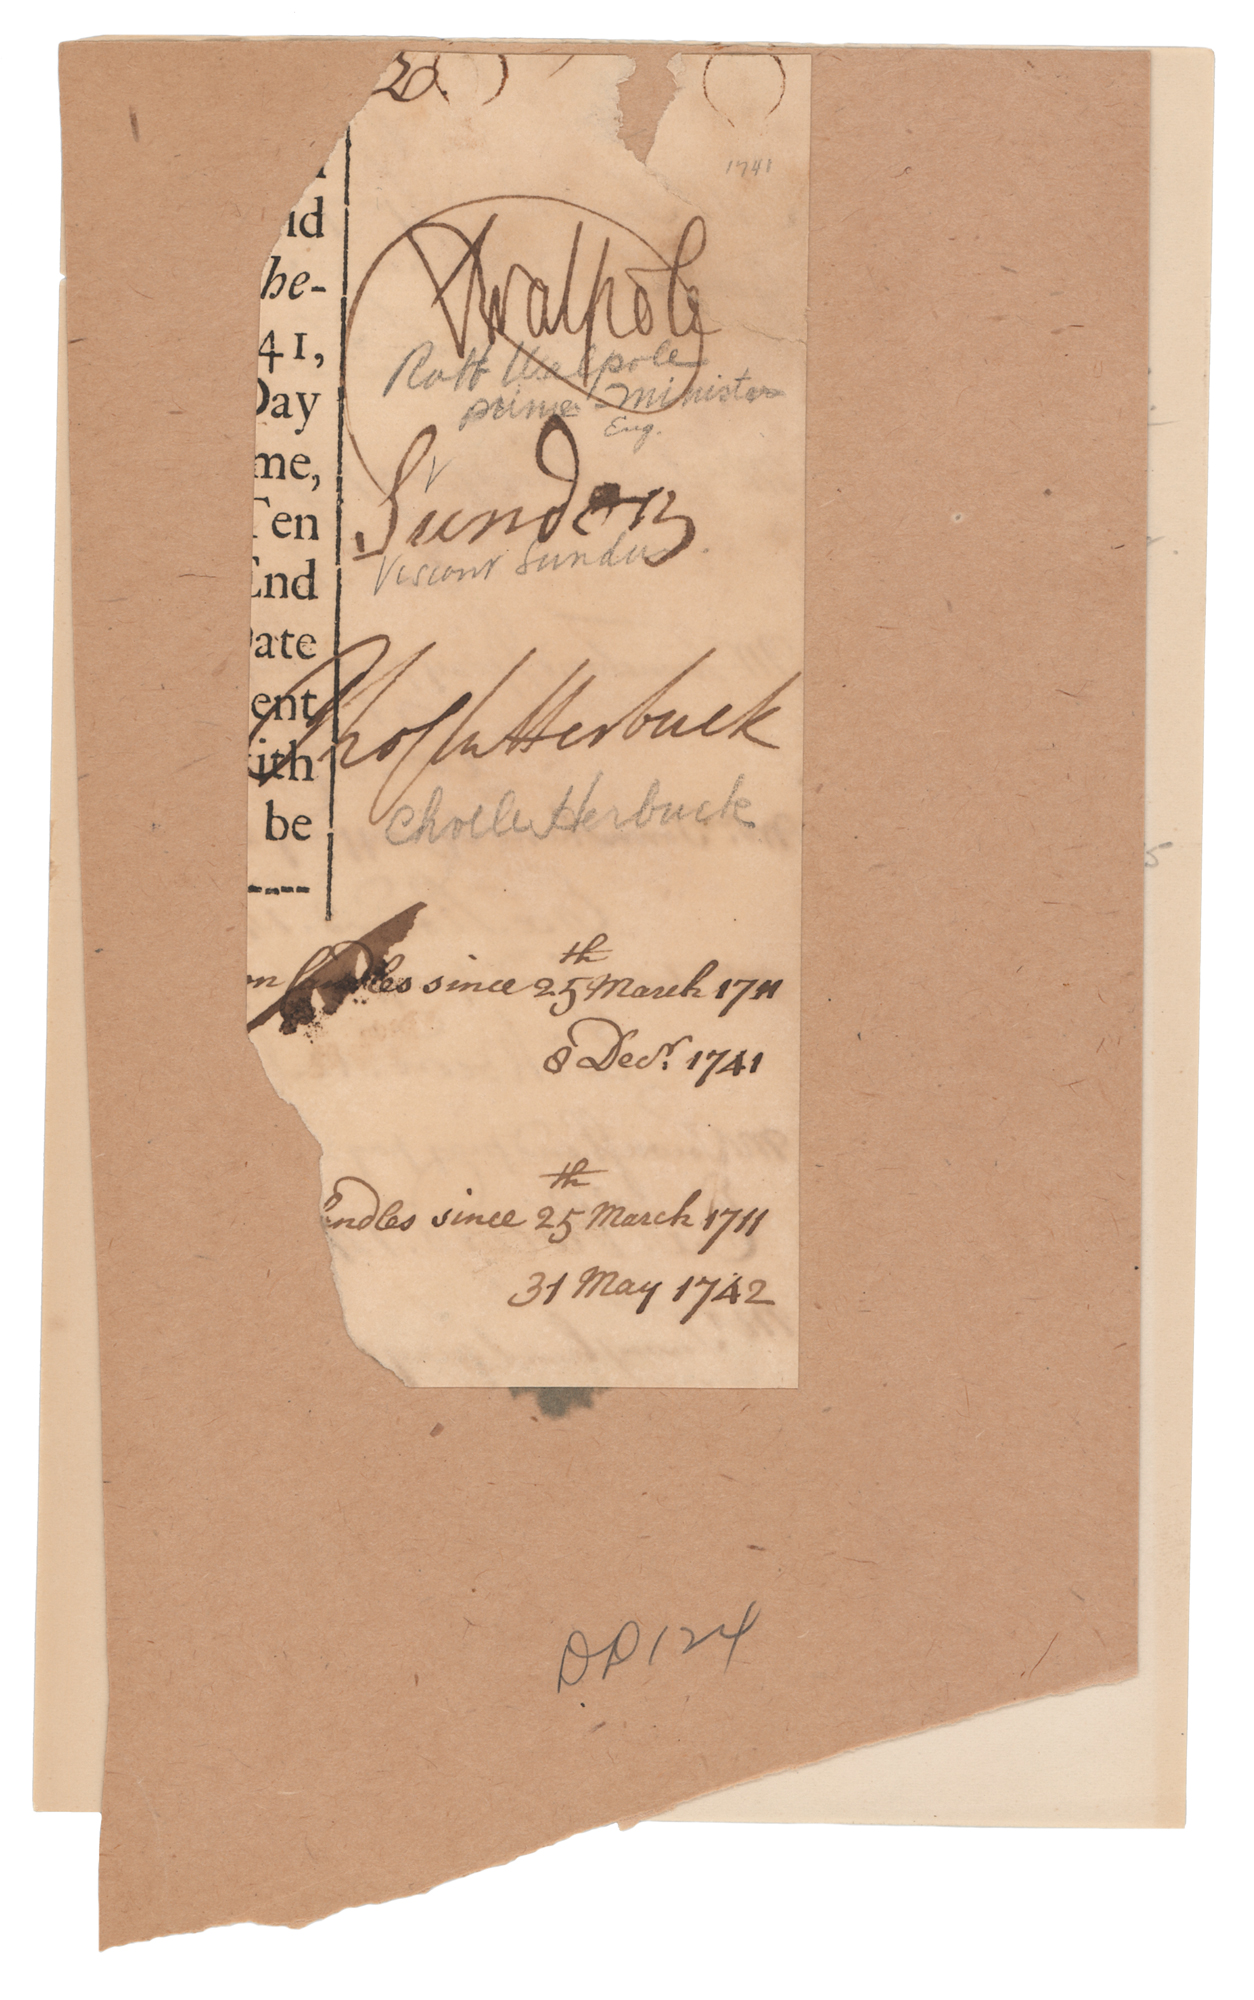 1741
id
he-
41,
Day
me,
Ten
End
Date
ent
ith
be
RWalpole
Robt Walpole
prime-Minister
Eng.
Sundon
Viscont Sundon
Tho Clutterbuck
on Candles since 25th March 1711
8 Decr. 1741
Candles since 25th March 1711
31 May 1742
DD124